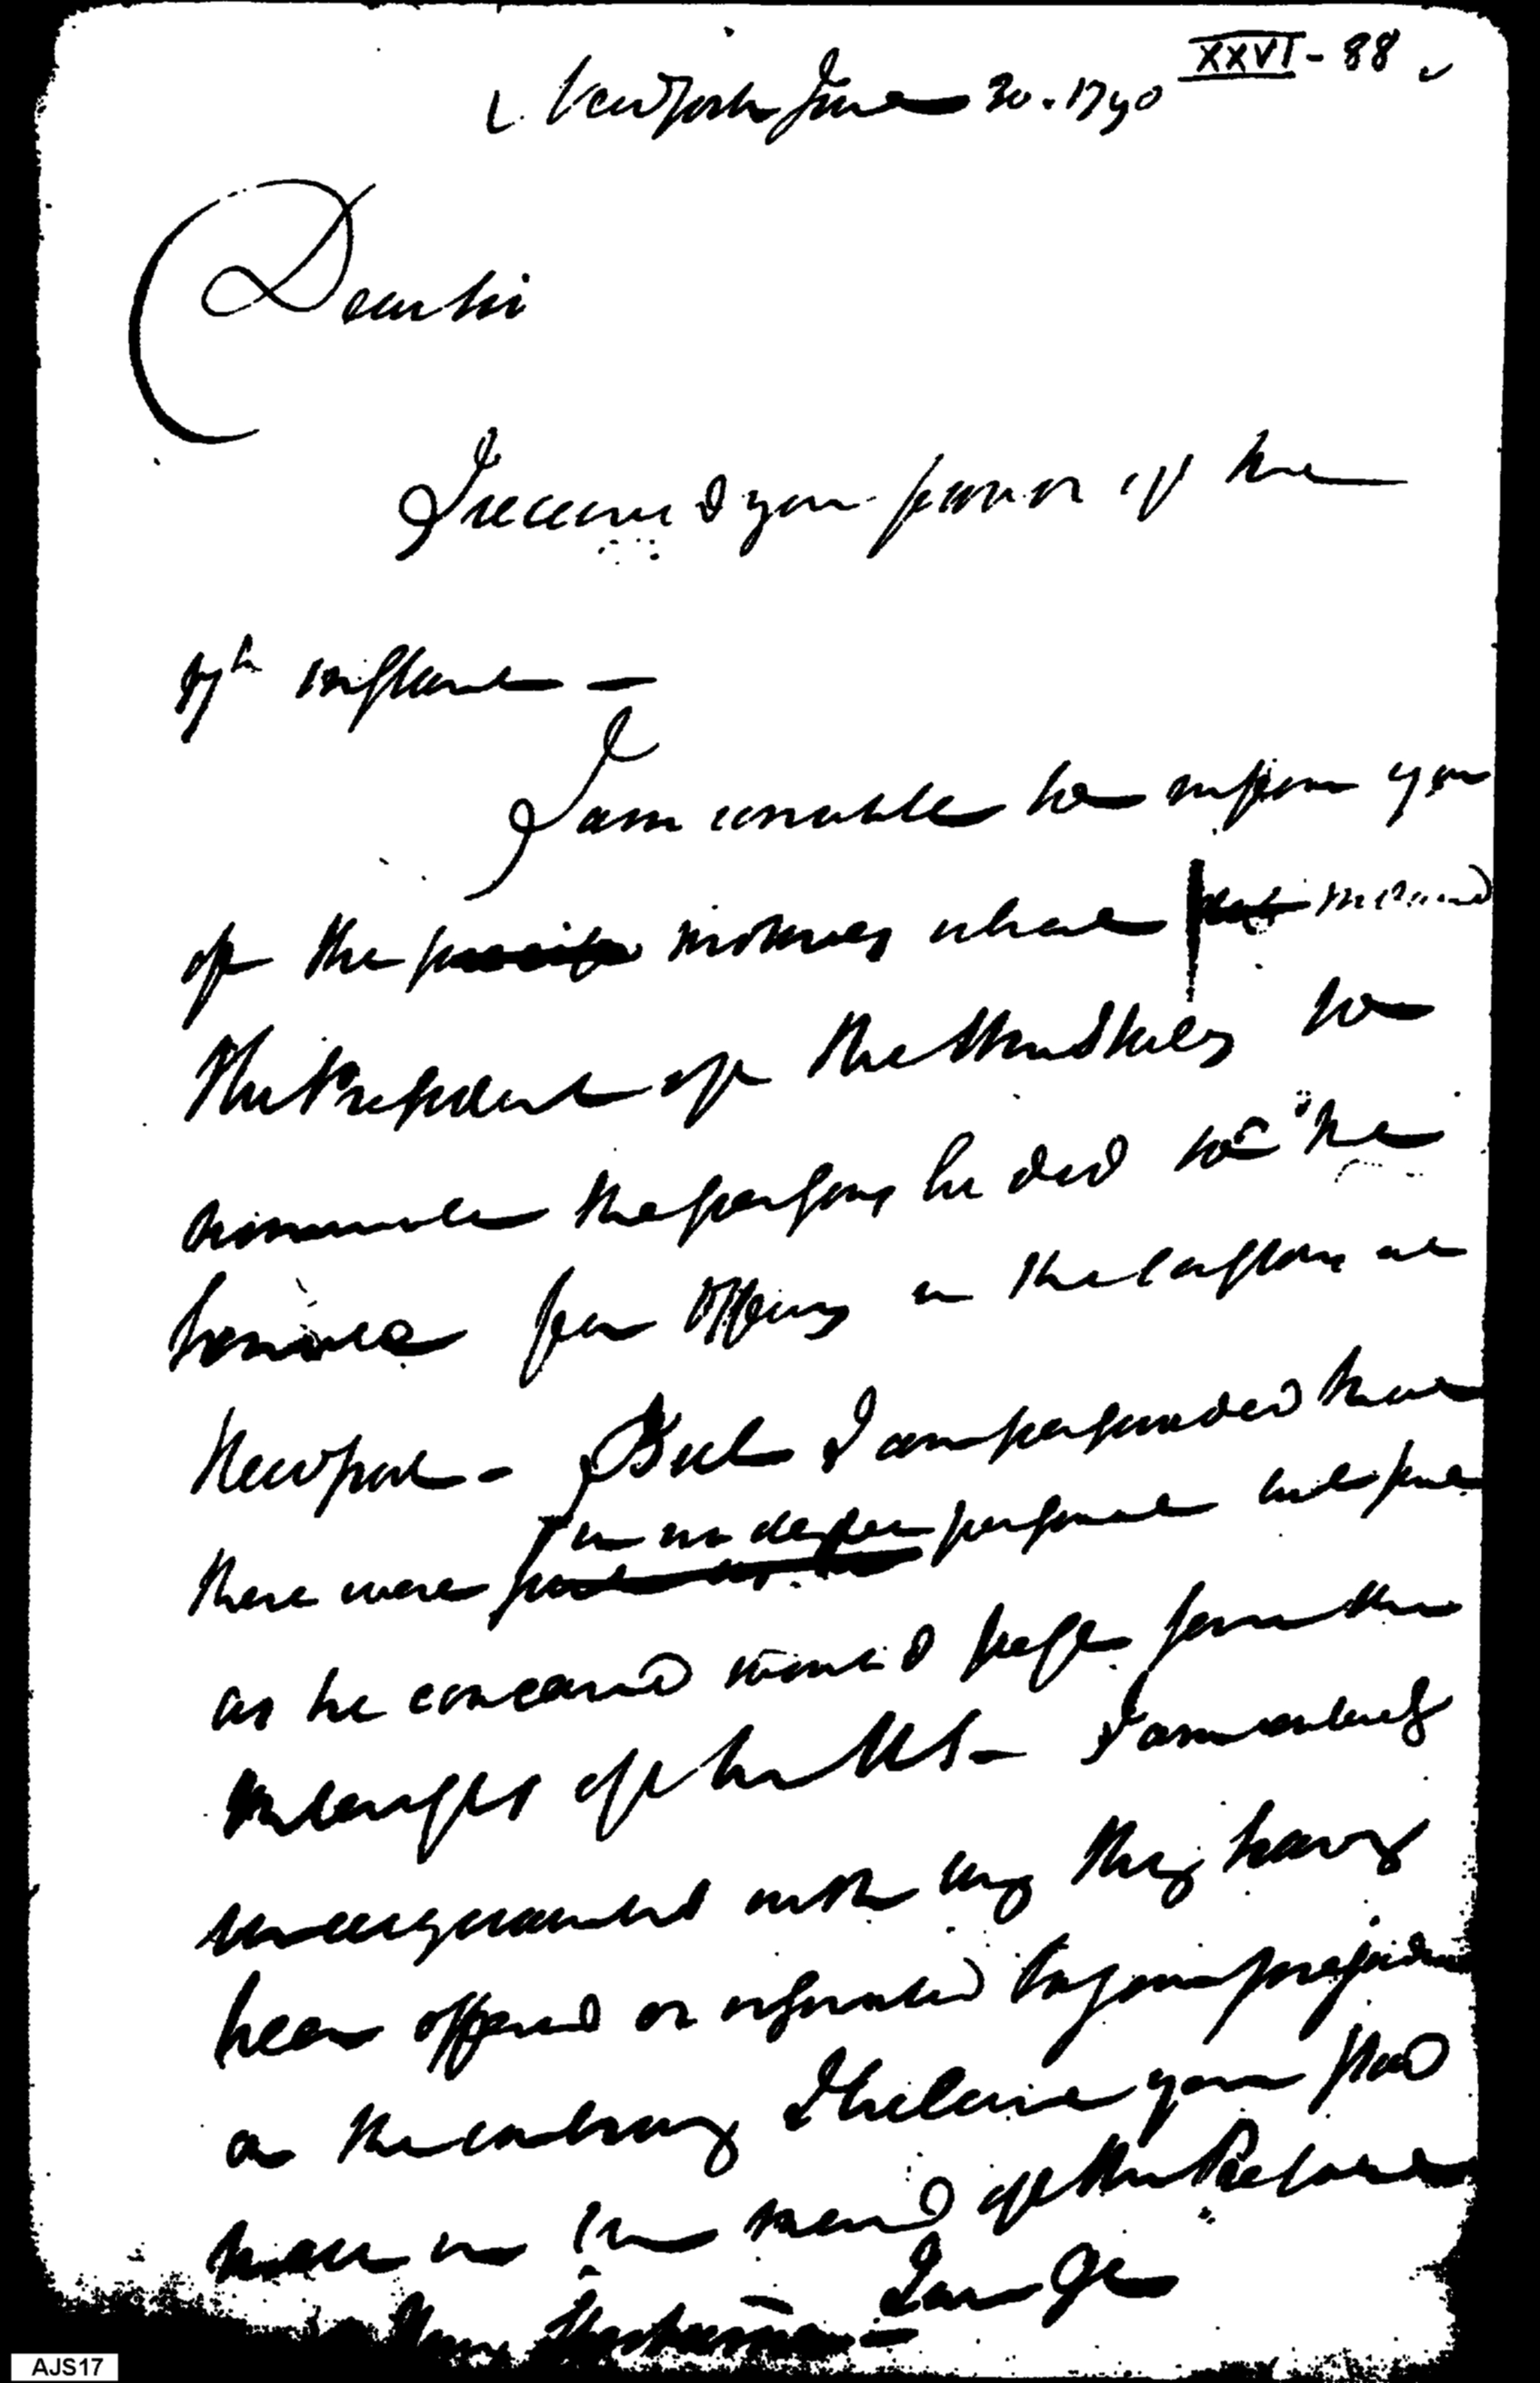 XXVI - 88
New York June 20. 1790
Dear Sir
I received your favor of the
17th instant —
I am unable to inform you
of the motives which induced
The President of the United States to
nominate the persons he did to be
for Offices in the Customs at
Newport - But I am persuaded that
there were in no degree personal
as he conceived would from the
of his - I am entirely
unacquainted with any thing having
been offered or insinuated to your prejudice
on the contrary I believe you stood
in the mind of the President
I am &c
AJS17